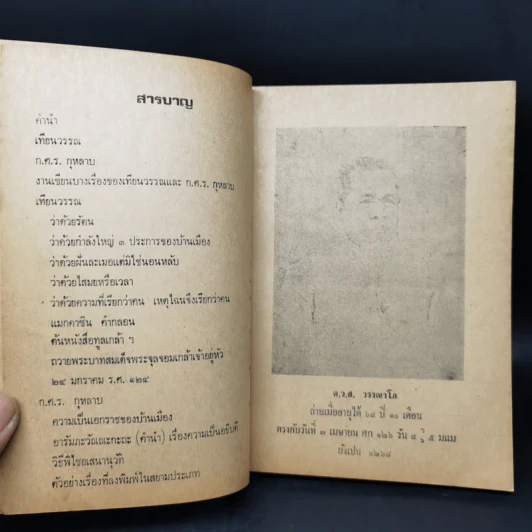 สารบาญ
คำนำ
เทียนวรรณ
ก.ศ.ร. กุหลาบ
งานเขียนบางเรื่องของเทียนวรรณและ ก.ศ.ร. กุหลาบ
เทียนวรรณ
ว่าด้วยรัตน
ว่าด้วยกำลังใหญ่ ๓ ประการของบ้านเมือง
ว่าด้วยฝันละเมอแต่มิใช่นอนหลับ
ว่าด้วยไสมยหรือเวลา
ว่าด้วยความที่เรียกว่าคน เหตุไฉนจึงเรียกว่าคน
แมกคาซิน คำกลอน
ต้นหนังสือทูลเกล้า ฯ
ถวายพระบาทสมเด็จพระจุลจอมเกล้าเจ้าอยู่หัว
๒๔ มกราคม ร.ศ. ๑๒๔
ก.ศ.ร. กุหลาบ
ความเป็นเอกราชของบ้านเมือง
(คำนำ) เรื่องความเป็นอธิบดี
วิธีพิไชยเสนานุวัติ
ตัวอย่างเรื่องที่ลงพิมพ์ในสยามประเภท
ต.ว.ส. วรรณาโภ
ถ่ายเมื่ออายุได้ ๖๔ ปี ๑๐ เดือน
ตรงกับวันที่ ๓ เมษายน ศก ๑๒๖ วัน ๔ ๕ มแม
ยังเปน ๑๒๖๘